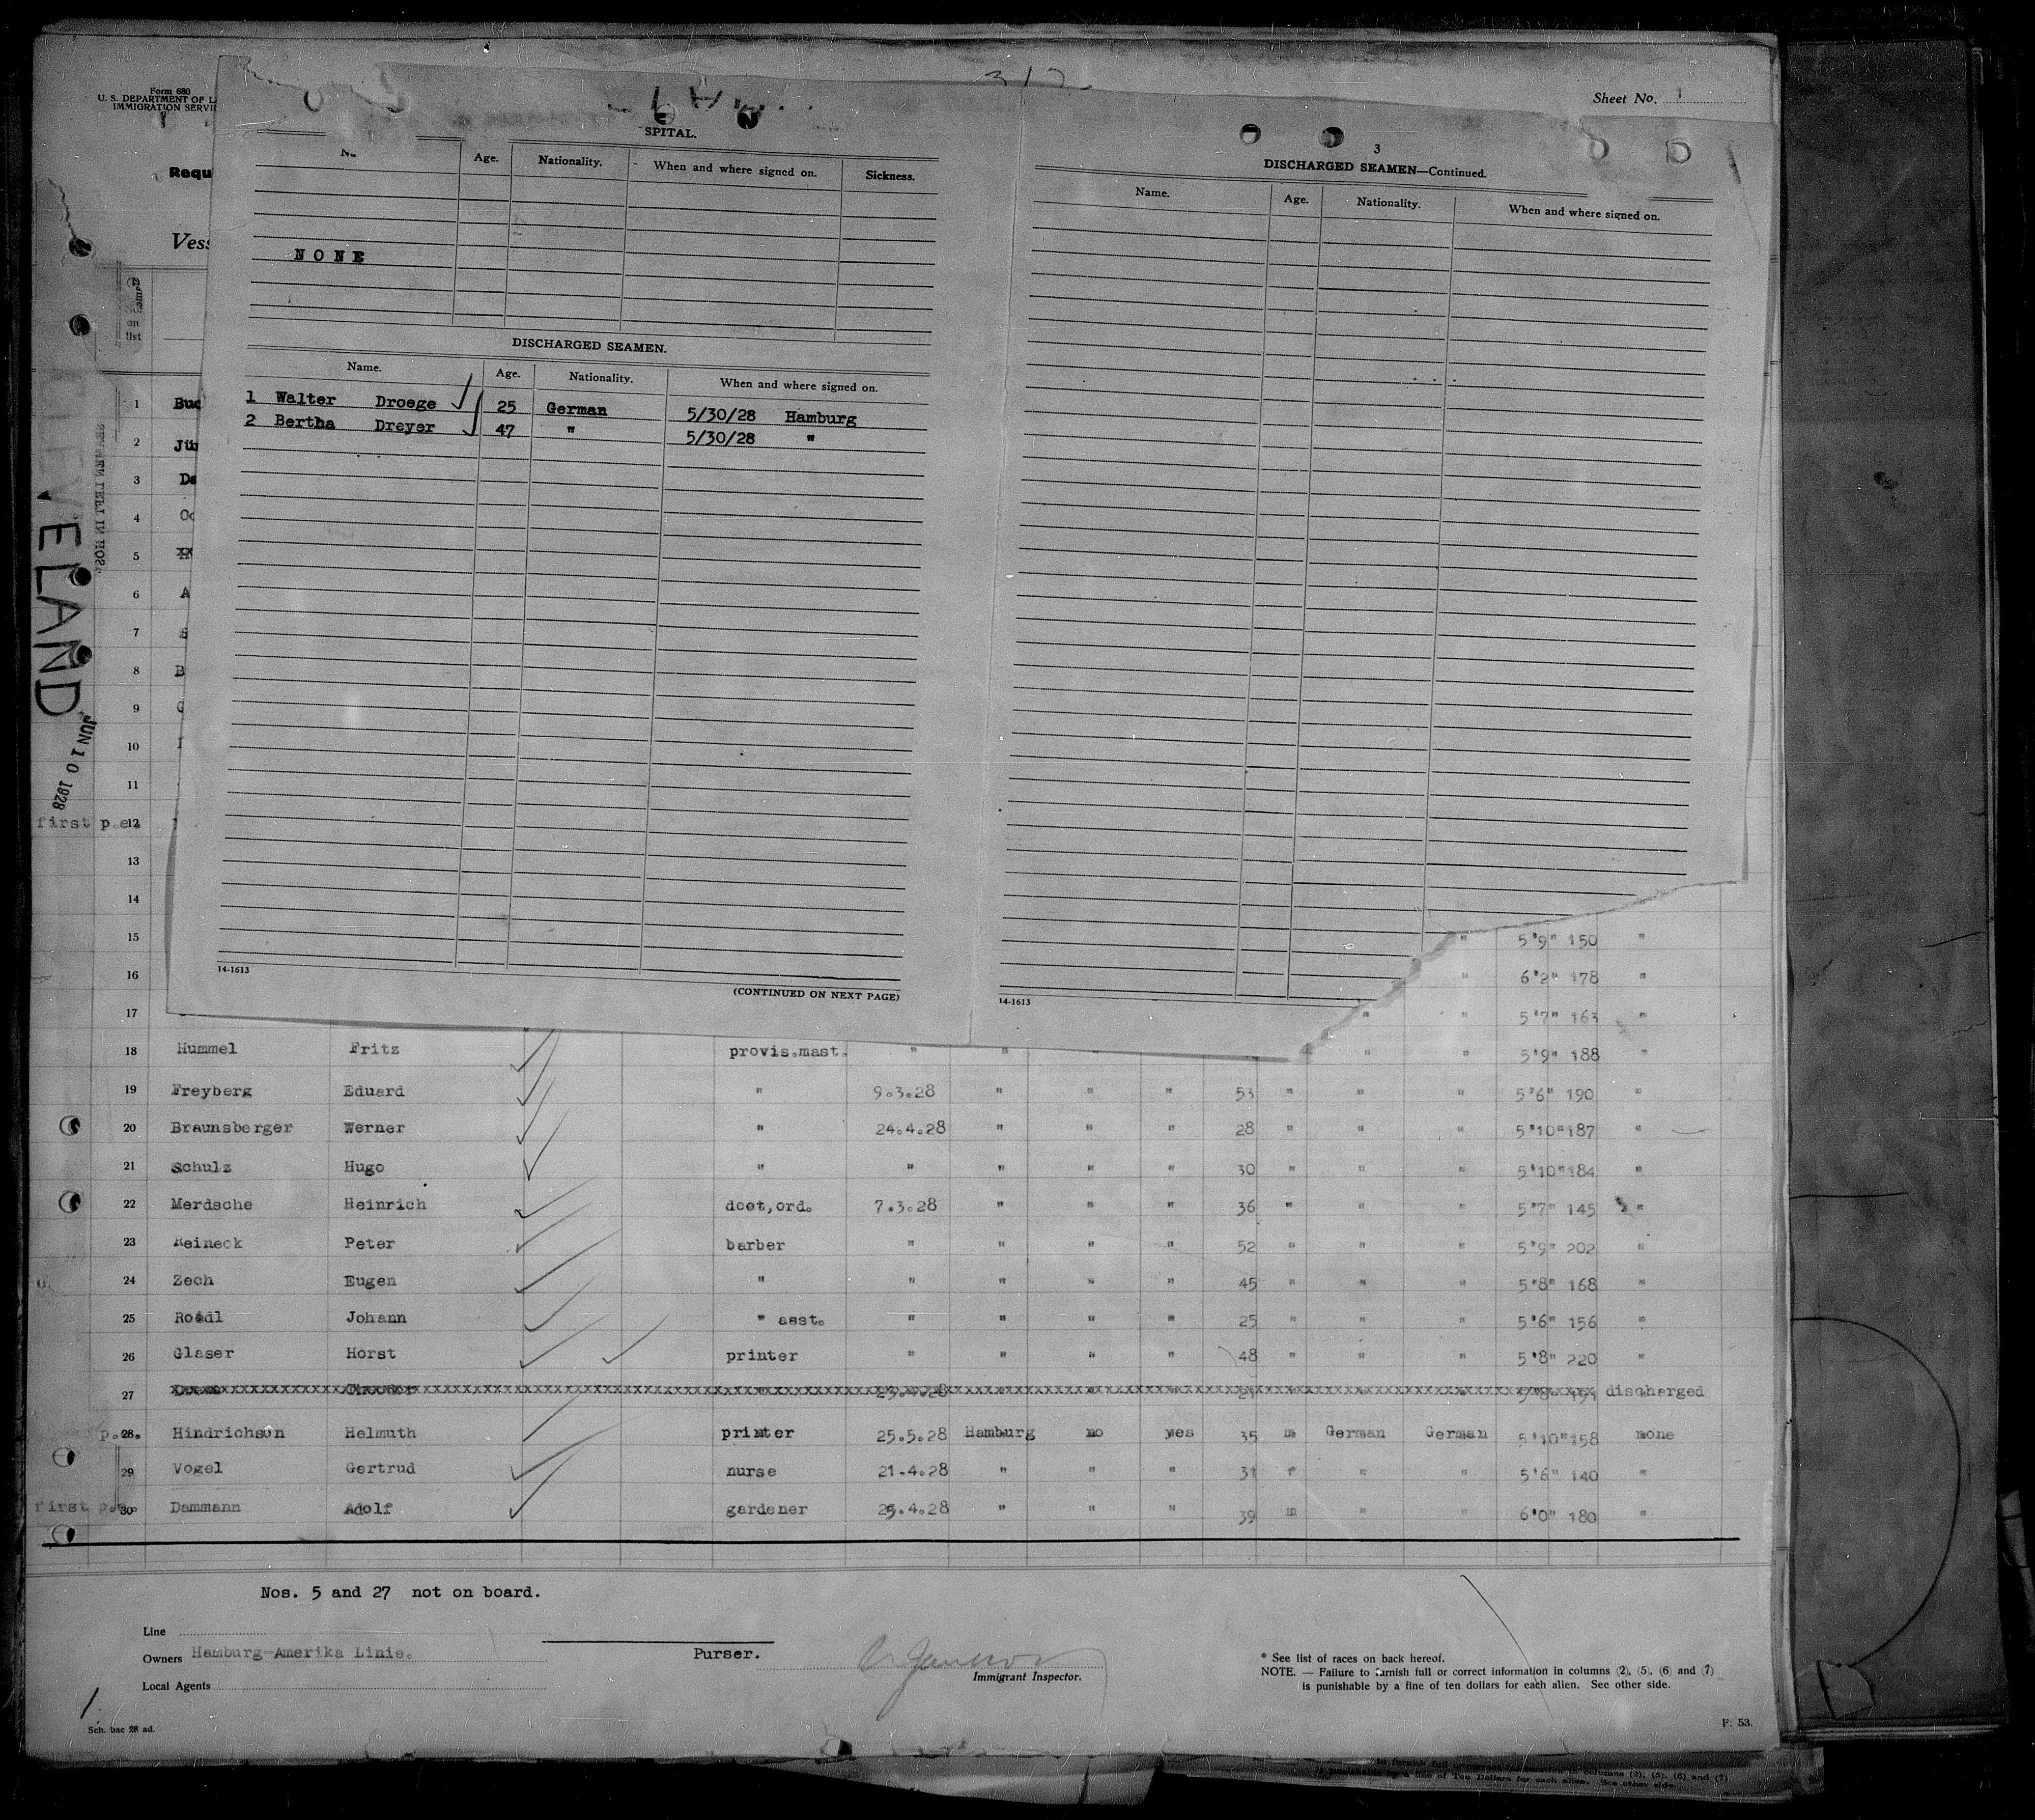 Form 680
U. S. DEPARTMENT OF L
IMMIGRATION SERVI
Sheet No. 1
Requ
Vess
on
list
SPITAL.
Age. Nationality. When and where signed on. Sickness.
NONE
DISCHARGED SEAMEN.
Name. Age. Nationality. When and where signed on.
1 Walter Droege 25 German 5/30/28 Hamburg
2 Bertha Dreyer 47 " 5/30/28 "
14-1613
(CONTINUED ON NEXT PAGE)
3
DISCHARGED SEAMEN—Continued.
Name. Age. Nationality. When and where signed on.
14-1613
VELAND
JUN 10 1928
1
2 Jün
3 De
4
5
6 A
7
8 B
9
10
11
first p.e. 12
13
14
15 " 5'9" 150 "
16 " 6'2" 178 "
17 " " 5'7" 163 "
18 Hummel Fritz provis.mast. " " " " 5'9" 188 "
19 Freyberg Eduard " 9.3.28 " " " 53 " " " 5'6" 190 "
20 Braunsberger Werner " 24.4.28 " " " 28 " " " 5'10" 187 "
21 Schulz Hugo " " " " " 30 " " " 5'10" 184 "
22 Merdsche Heinrich doct,ord. 7.3.28 " " " 36 " " " 5'7" 145 "
23 Reineck Peter barber " " " " 52 " " " 5'9" 202 "
24 Zech Eugen " " " " " 45 " " " 5'8" 168 "
25 Roedl Johann " asst. " " " " 25 " " " 5'6" 156 "
26 Glaser Horst printer " " " " 48 " " " 5'8" 220 "
27 discharged
p.e. 28. Hindrichson Helmuth printer 25.5.28 Hamburg no yes 35 m German German 5'10" 158 none
29 Vogel Gertrud nurse 21.4.28 " " " 31 f " " 5'6" 140 "
first p.e. 30 Dammann Adolf gardener 25.4.28 " " " 39 m " " 6'0" 180 "
Nos. 5 and 27 not on board.
Line
Owners Hamburg-Amerika Linie.
Local Agents
Purser.
Immigrant Inspector.
* See list of races on back hereof.
NOTE. — Failure to furnish full or correct information in columns (2), (5), (6) and (7)
is punishable by a fine of ten dollars for each alien. See other side.
Sch. bac 28 ad.
F. 53.